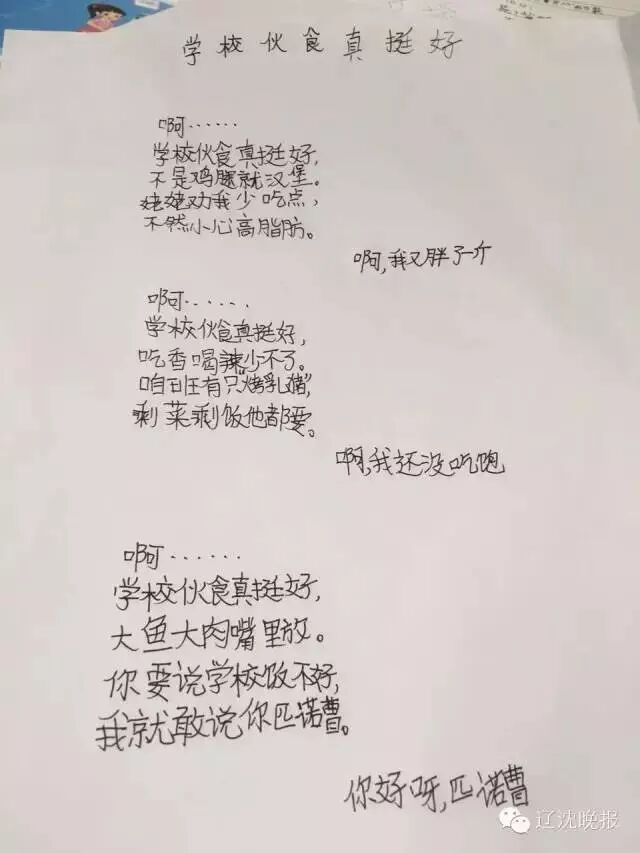 学校伙食真挺好
啊……
学校伙食真挺好,
不是鸡腿就汉堡。
姥姥劝我少吃点,
不然小心高脂肪。
啊,我又胖了一斤
啊……
学校伙食真挺好,
吃香喝辣少不了。
咱班有只"烤乳猪",
剩菜剩饭他都要。
啊,我还没吃饱
啊……
学校伙食真挺好,
大鱼大肉嘴里放。
你要说学校饭不好,
我就敢说你匹诺曹。
你好呀,匹诺曹
辽沈晚报